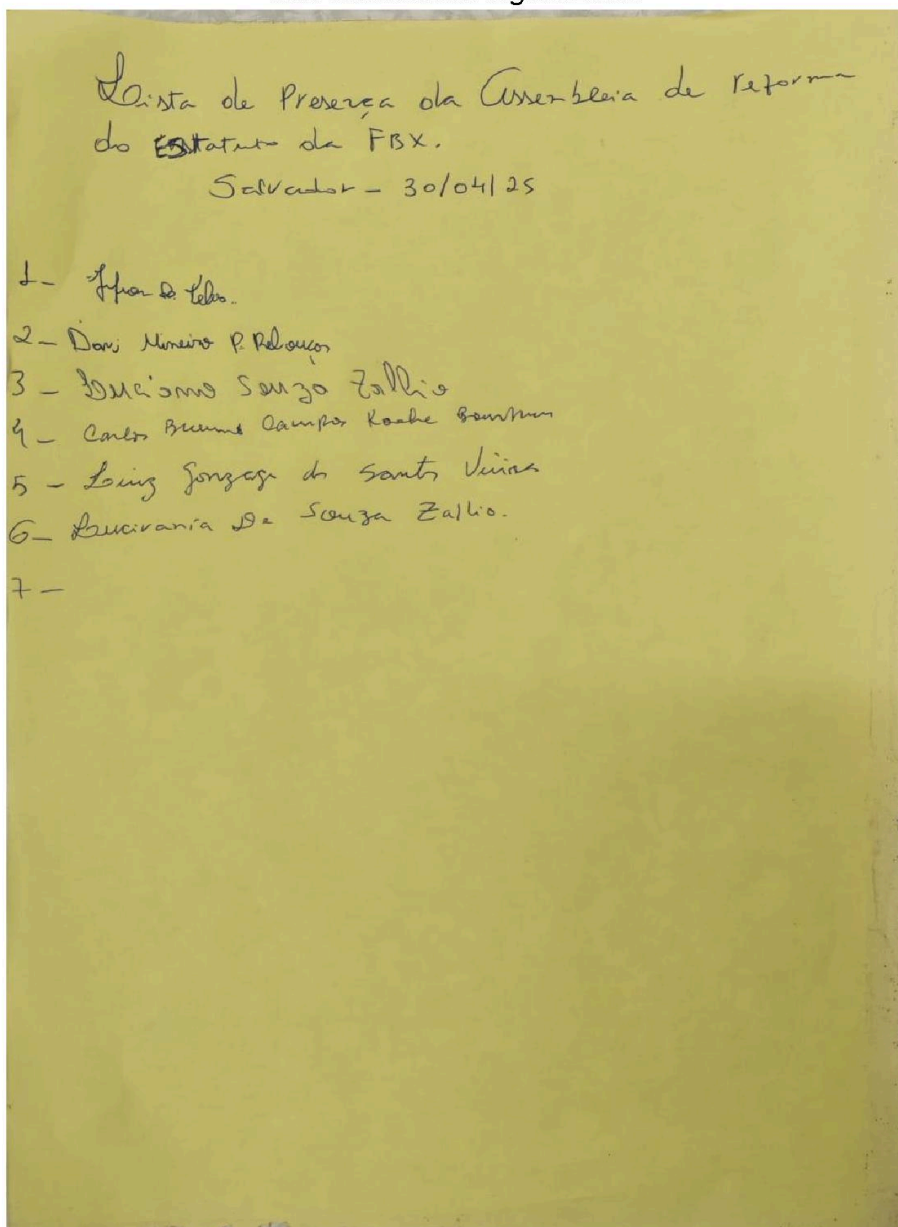 Lista de Presença da Assembleia de reforma
do Estatuto da FBX.
Salvador - 30/04/25
1-
2- Davi Mineiro P. Rebouças
3- Luciano Souza Zallio
4- Carlos Campos
5- Luiz Gonzaga dos Santos Vieira
6- Lucivania De Souza Zallio.
7-